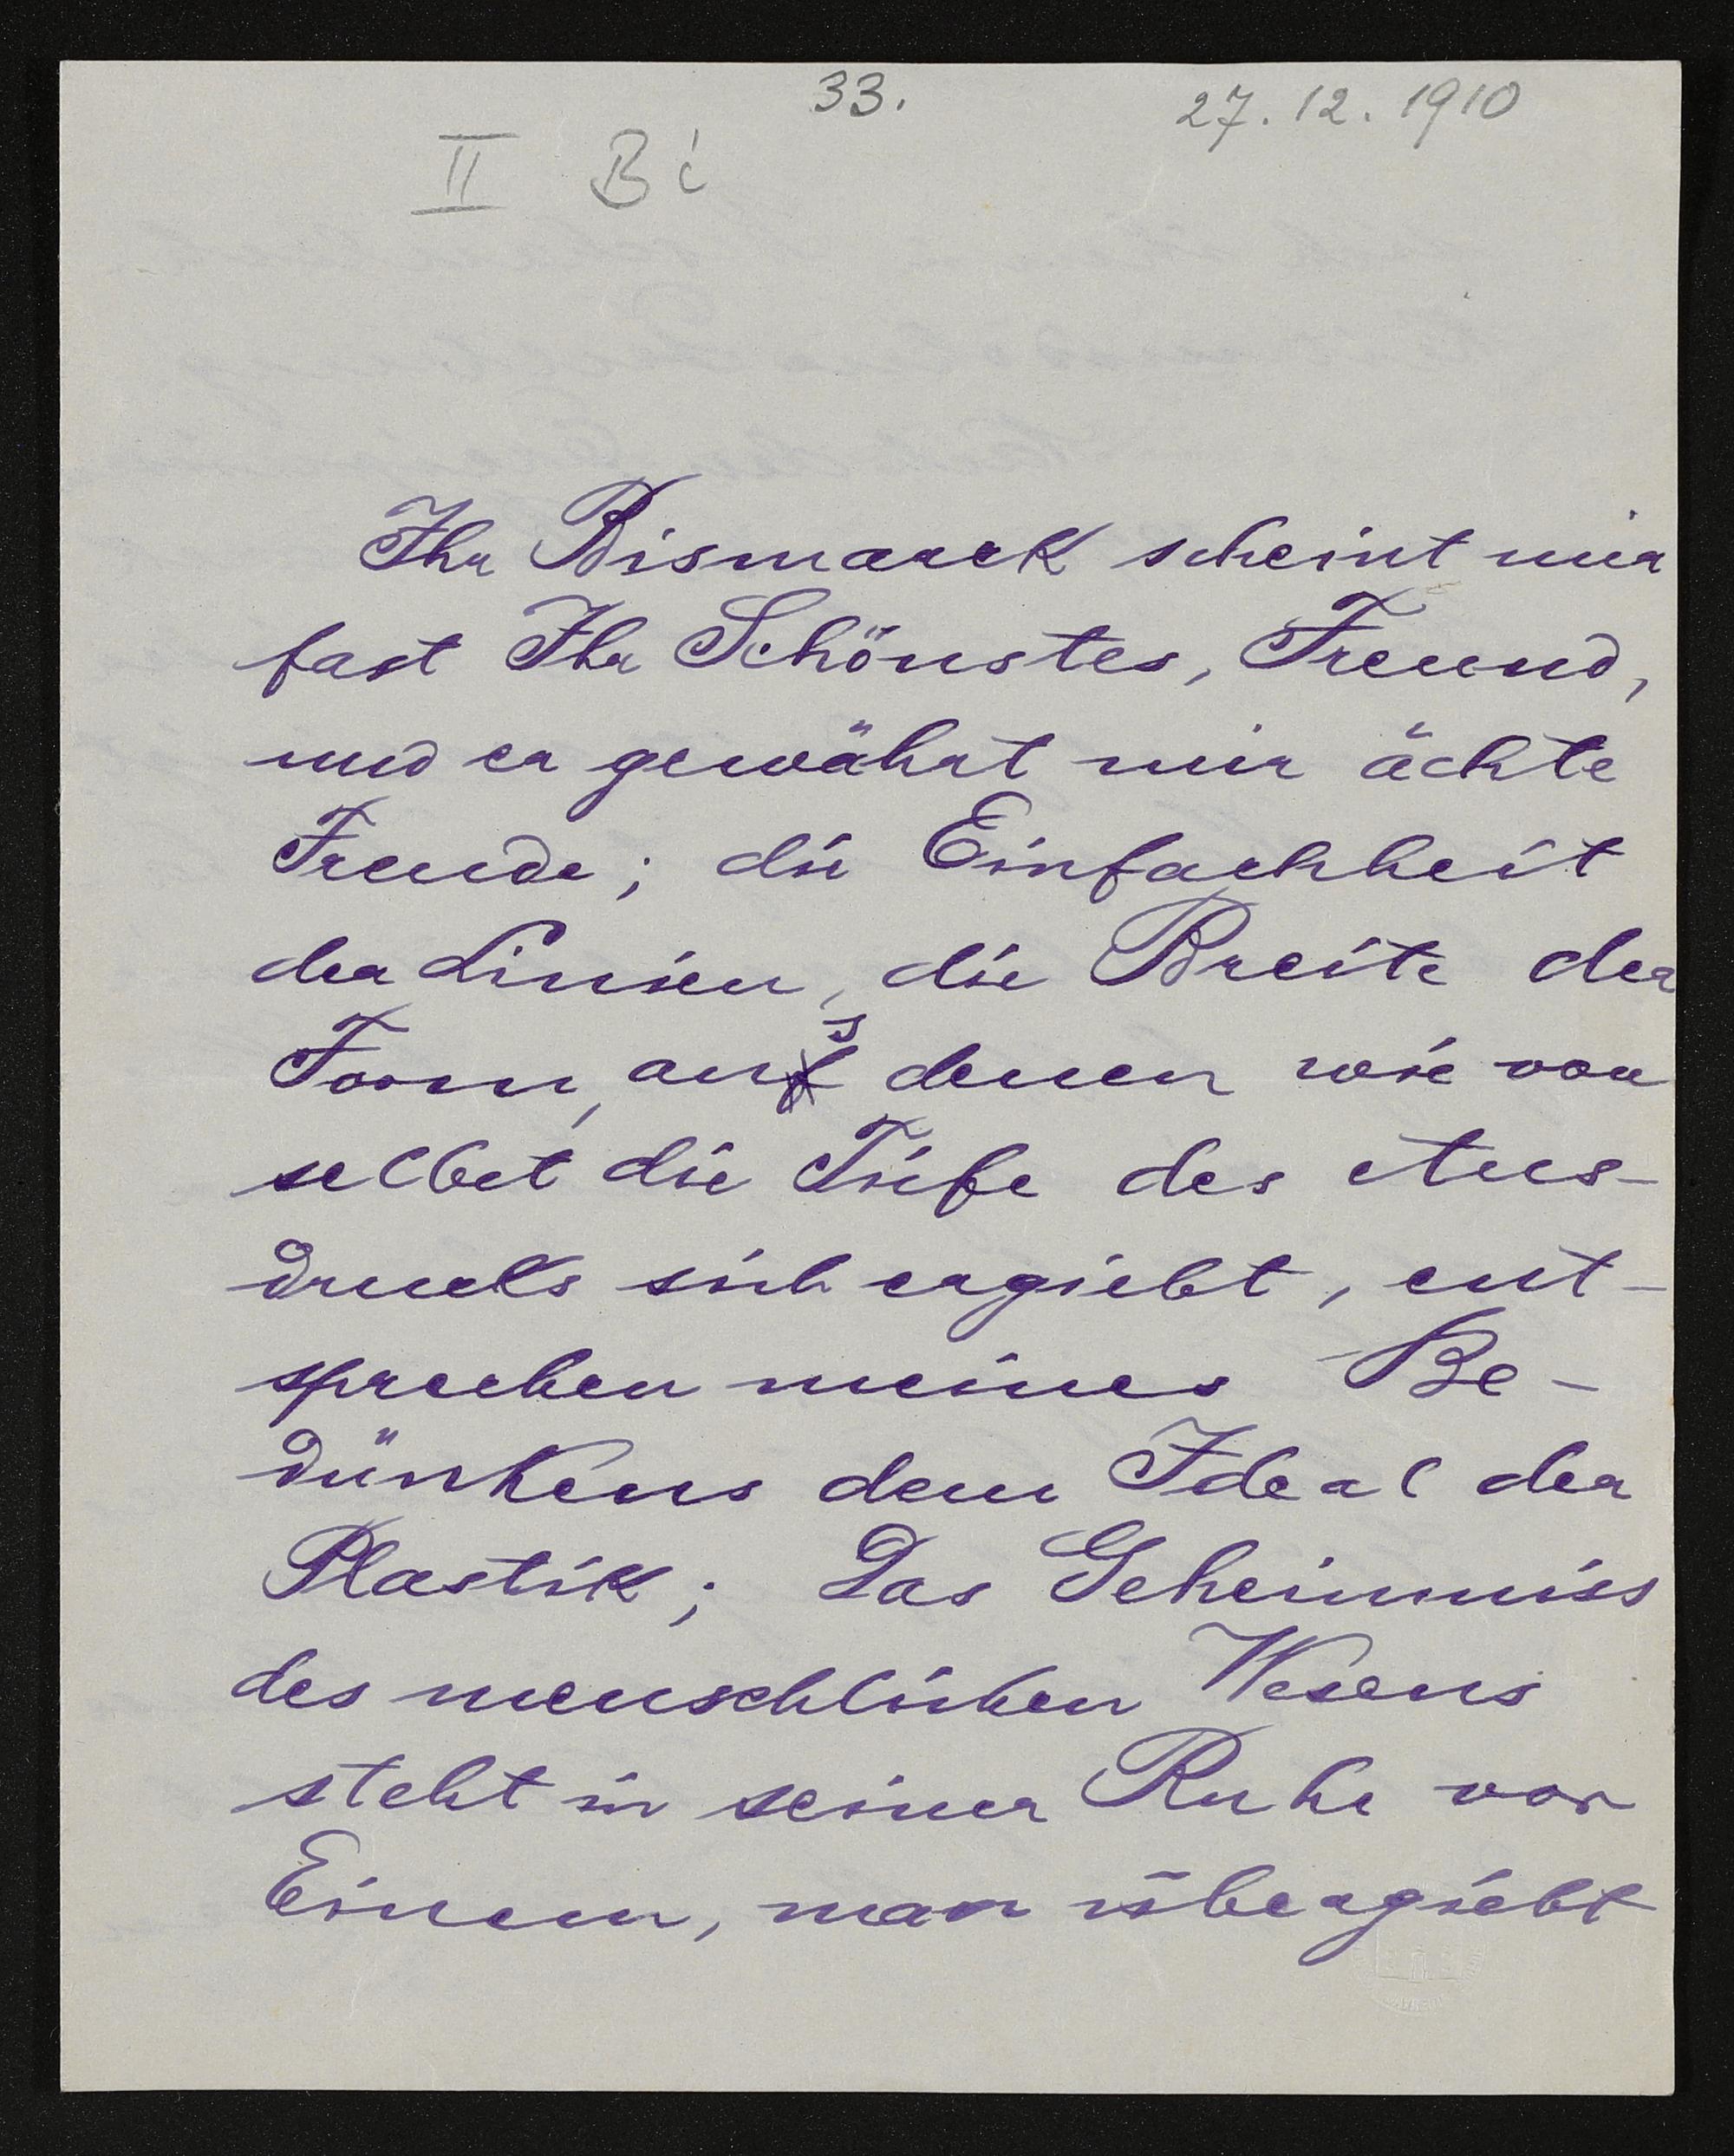 33.
27. 12. 1910
II Bi
Ihr Bismarck scheint mir
fast Ihr Schönstes, Freund,
und er gewährt mir ächte
Freude; die Einfachheit
der Linien, die Breite der
Form, aus denen wie von
selbst die Tiefe des Aus-
drucks sich ergiebt, ent-
sprechen meines Be-
dünkens dem Ideal der
Plastik; Das Geheimniss
des menschlichen Wesens
steht in seiner Ruhe vor
Einem, man übergiebt